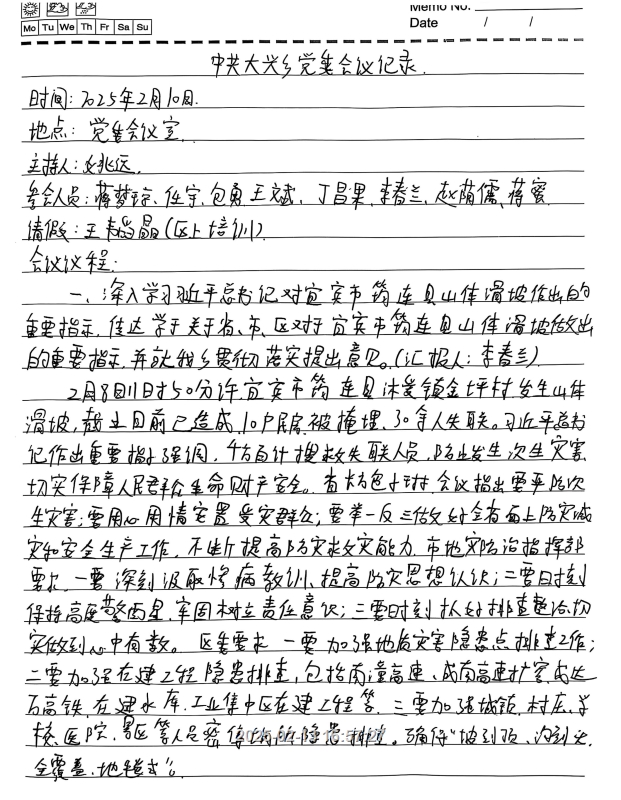 Memo No.
Mo Tu We Th Fr Sa Su
Date / /
中共大兴乡党委会议记录.
时间:2025年2月10日.
地点:党委会议室.
主持人:赵兆远.
参会人员:蒋梦琼、任宇、包勇、王斌、丁昌果、李春兰、赵荫儒、蒋蜜
请假:王晶(区上培训)
会议议程:
一、深入学习近平总书记对宜宾市筠连县山体滑坡作出的
重要指示,传达学习关于省、市、区对于宜宾市筠连县山体滑坡做出
的重要指示,并就我乡贯彻落实提出意见。(汇报人:李春兰)
2月8日11时50分许宜宾市筠连县沐爱镇金坪村发生山体
滑坡,截止目前已造成10户民房被掩埋,30余人失联。习近平总书
记作出重要指示强调,千方百计搜救失联人员,防止发生次生灾害,
切实保障人民群众生命财产安全。省 会议指出要严防次
生灾害;要用心用情安置受灾群众;要举一反三做好全省面上防灾减
灾和安全生产工作,不断提高防灾救灾能力.市地灾防治指挥部
要求,一要深刻汲取惨痛教训、提高防灾思想认识;二要时刻
保持高度警惕,牢固树立责任意识;三要时刻抓好排查整治,切
实做到心中有数。区委要求 一要加强地质灾害隐患点排查工作;
二要加强在建工程隐患排查,包括内潼高速、成南高速扩容、成达
万高铁,在建水库、工业集中区在建工程等.三要加强城镇、村庄、学
校、医院、景区等人员密集场所隐患排查。确保"坡到顶、沟到头、
全覆盖、地毯式"。